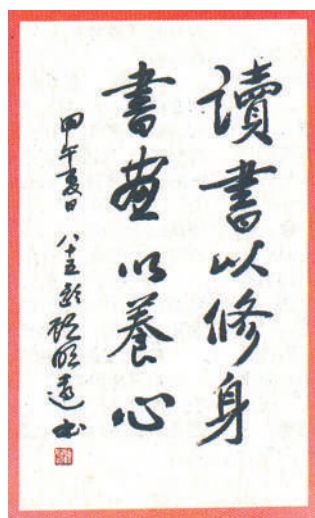 讀書以修身
書畫以養心
甲午夏日 八十五叟 顧明遠書